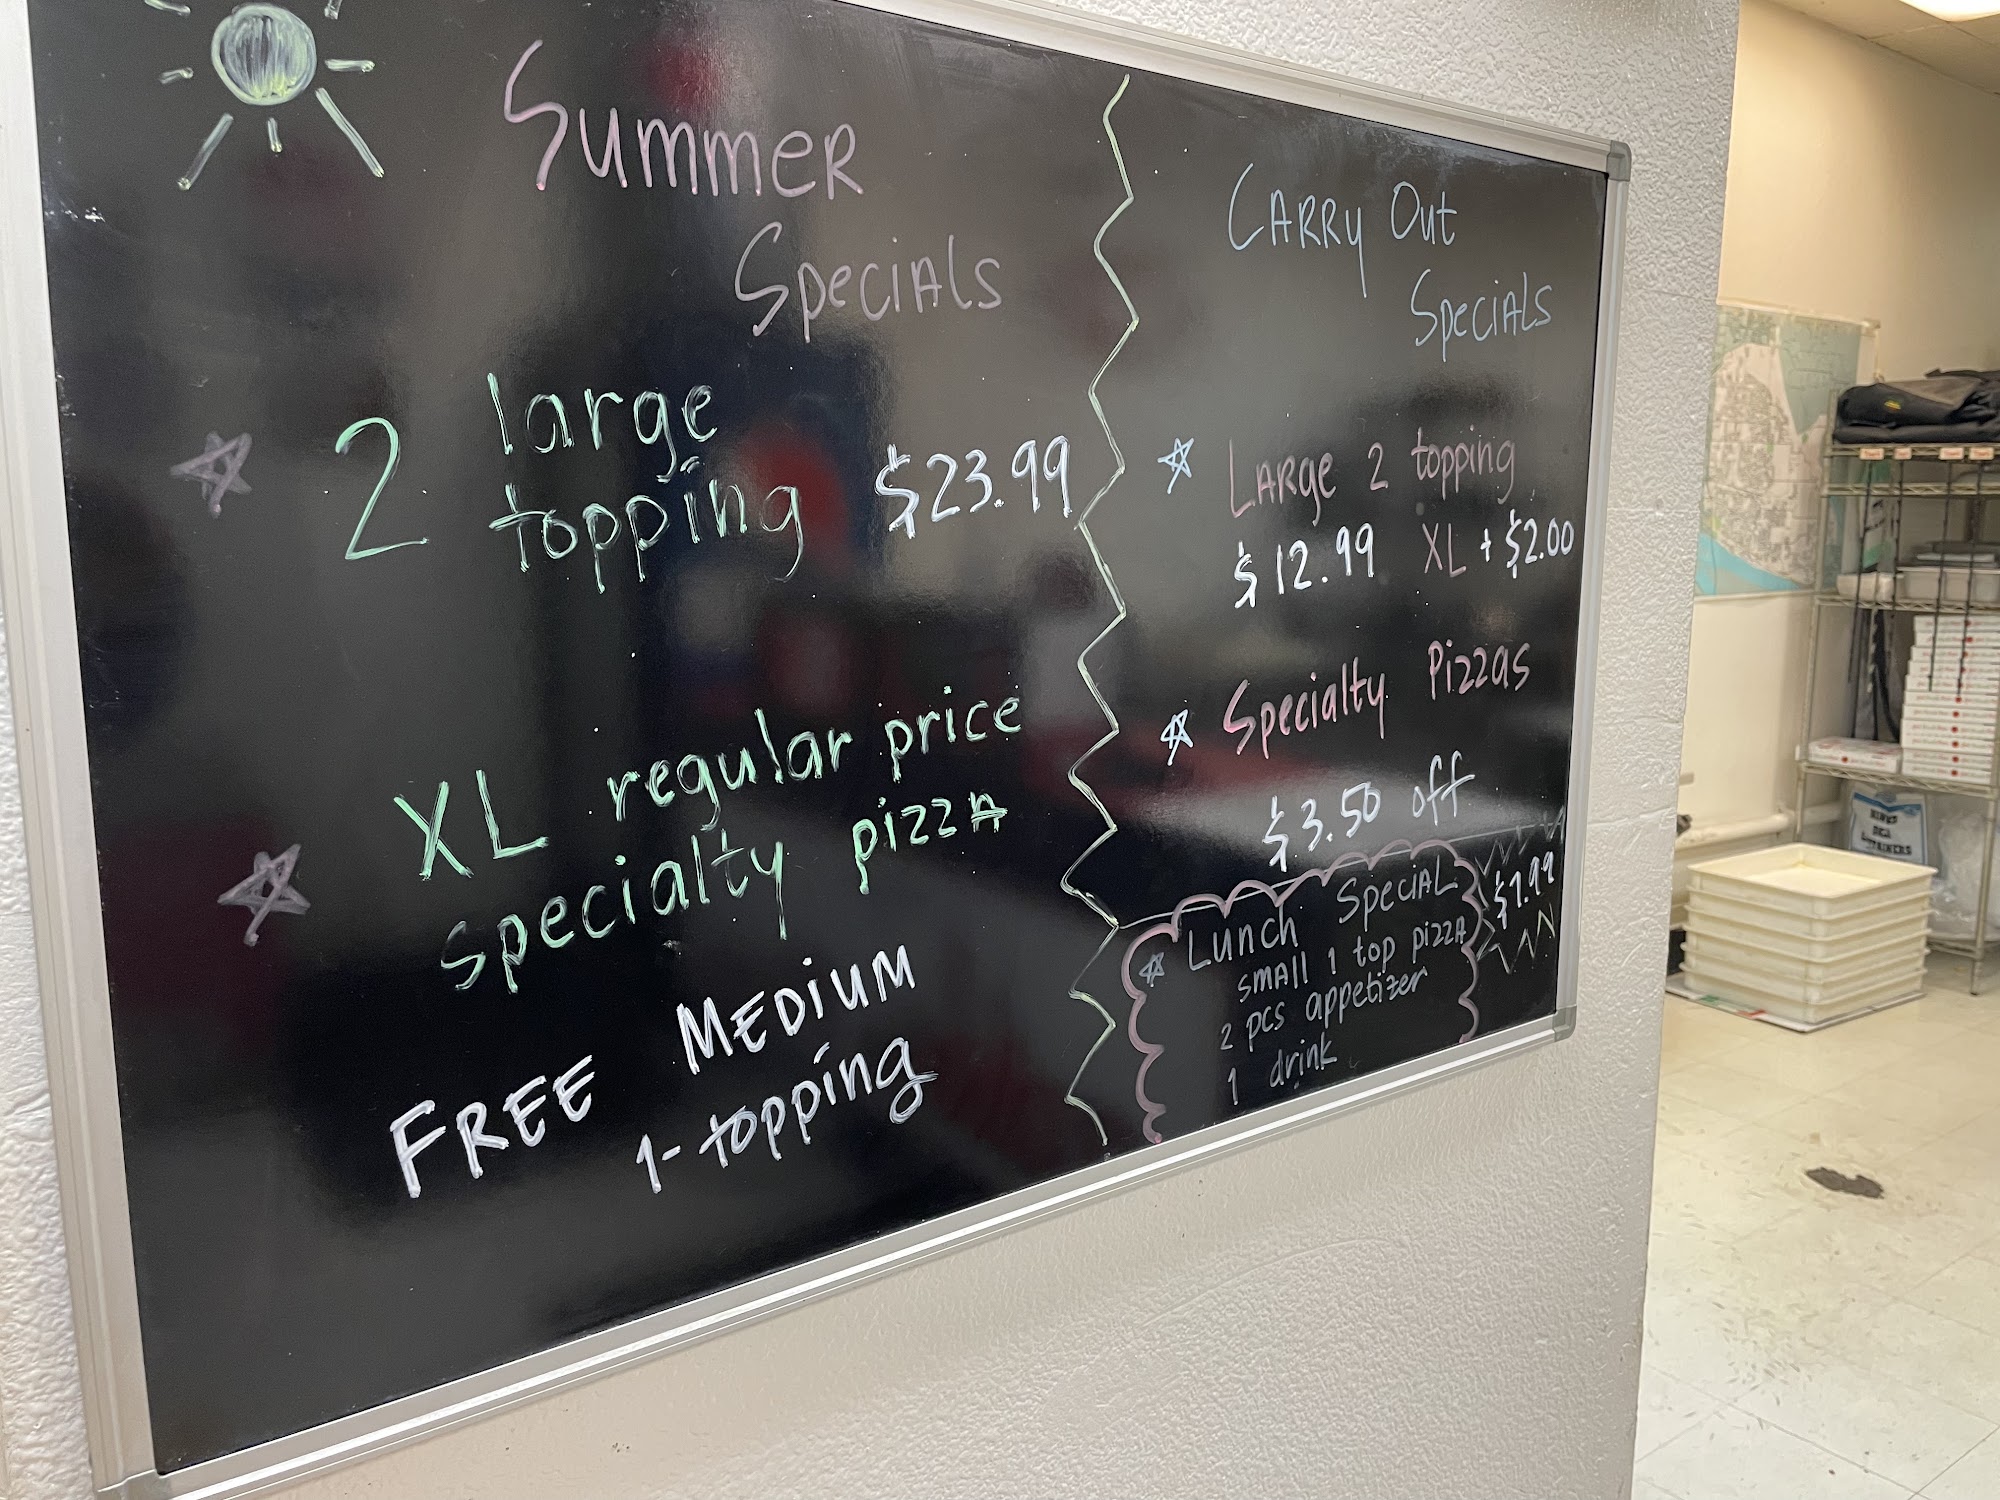 Summer
Specials
2 large
topping $23.99
XL regular price
specialty pizza
FREE MEDIUM
1-topping
Carry Out
Specials
Large 2 topping
$12.99 XL + $2.00
Specialty Pizzas
$3.50 off
Lunch Special
small 1 top pizza
2 pcs appetizer
1 drink